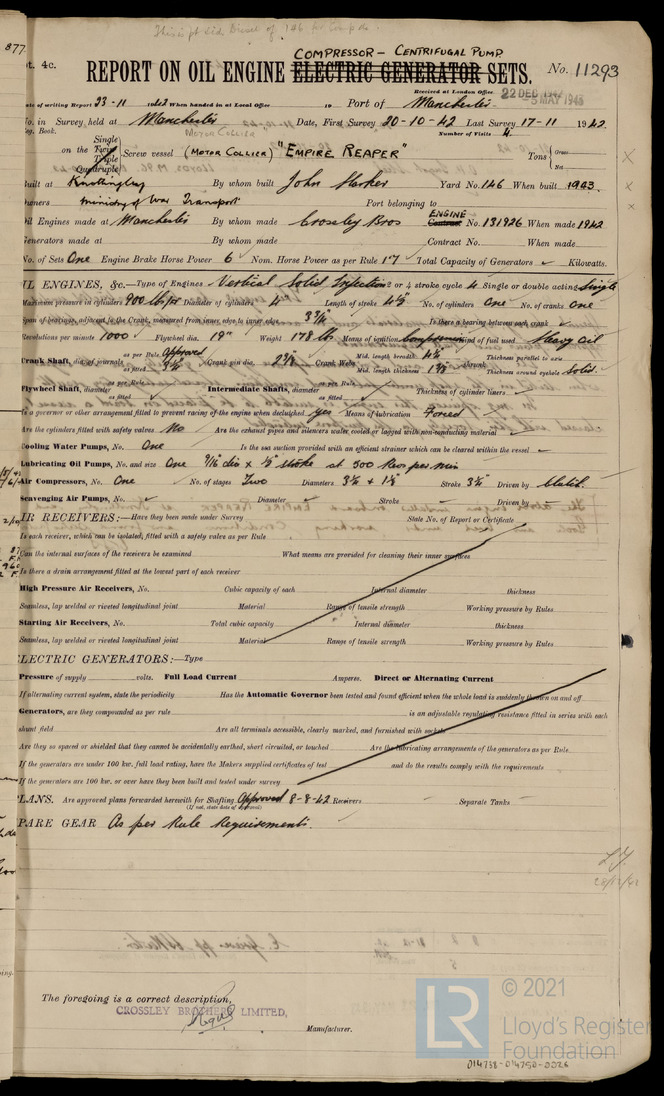 877
COMPRESSOR – CENTRIFUGAL PUMP
pt. 4c. REPORT ON OIL ENGINE ELECTRIC GENERATOR SETS. No. 11293
Received at London Office 22 DEC 1942
- 5 MAY 1943
Date of writing Report 23-11 1942 When handed in at Local Office 19 Port of Manchester
No. in Survey held at Manchester Date, First Survey 20-10-42 Last Survey 17-11 1942
Reg. Book. MOTOR COLLIER Number of Visits 4
on the Single Twin Triple Quadruple Screw vessel (MOTOR COLLIER) "EMPIRE REAPER" Tons Gross Net
Built at Knottingley By whom built John Harker Yard No. 146 When built 1943
Owners Ministry of War Transport Port belonging to
Oil Engines made at Manchester By whom made Crossley Bros ENGINE Contract No. 131926 When made 1942
Generators made at By whom made Contract No. When made
No. of Sets One Engine Brake Horse Power 6 Nom. Horse Power as per Rule 1.7 Total Capacity of Generators Kilowatts.
OIL ENGINES, &c.—Type of Engines Vertical Solid Injection 2 or 4 stroke cycle 4 Single or double acting Single
Maximum pressure in cylinders 900 lb/□" Diameter of cylinders 4" Length of stroke 4½" No. of cylinders One No. of cranks One
Span of bearings, adjacent to the Crank, measured from inner edge to inner edge Is there a bearing between each crank
Revolutions per minute 1000 Flywheel dia. 19" Weight 178 lbs. Means of ignition Compression Kind of fuel used Heavy Oil
Crank Shaft, dia. of journals as per Rule Approved as fitted Crank pin dia. Crank Webs Mid. length breadth 4½" Mid. length thickness shrunk Thickness parallel to axis Thickness around eyehole Solid.
Flywheel Shaft, diameter as per Rule as fitted Intermediate Shafts, diameter as per Rule as fitted Thickness of cylinder liners
Is a governor or other arrangement fitted to prevent racing of the engine when declutched Yes Means of lubrication Forced
Are the cylinders fitted with safety valves No Are the exhaust pipes and silencers water cooled or lagged with non-conducting material
Cooling Water Pumps, No. One Is the sea suction provided with an efficient strainer which can be cleared within the vessel
Lubricating Oil Pumps, No. and size One 7/16" dia x ½" stroke at 500 Revs per min
Air Compressors, No. One No. of stages Two Diameters Stroke Driven by
Scavenging Air Pumps, No. Diameter Stroke Driven by
AIR RECEIVERS:—Have they been made under Survey State No. of Report or Certificate
Is each receiver, which can be isolated, fitted with a safety valve as per Rule
Can the internal surfaces of the receivers be examined What means are provided for cleaning their inner surfaces
Is there a drain arrangement fitted at the lowest part of each receiver
High Pressure Air Receivers, No. Cubic capacity of each Internal diameter thickness
Seamless, lap welded or riveted longitudinal joint Material Range of tensile strength Working pressure by Rules
Starting Air Receivers, No. Total cubic capacity Internal diameter thickness
Seamless, lap welded or riveted longitudinal joint Material Range of tensile strength Working pressure by Rules
ELECTRIC GENERATORS:—Type
Pressure of supply volts. Full Load Current Amperes. Direct or Alternating Current
If alternating current system, state the periodicity Has the Automatic Governor been tested and found efficient when the whole load is suddenly thrown on and off
Generators, are they compounded as per rule is an adjustable regulating resistance fitted in series with each
shunt field Are all terminals accessible, clearly marked, and furnished with sockets
Are they so spaced or shielded that they cannot be accidentally earthed, short circuited, or touched Are the lubricating arrangements of the generators as per Rule
If the generators are under 100 kw. full load rating, have the Makers supplied certificates of test and do the results comply with the requirements
If the generators are 100 kw. or over have they been built and tested under survey
PLANS. Are approved plans forwarded herewith for Shafting Approved 8-8-42 Receivers Separate Tanks
(If not, state date of approval)
SPARE GEAR As per Rule Requirements.
The foregoing is a correct description,
CROSSLEY BROTHERS LIMITED,
Manufacturer.
LR
© 2021
Lloyd's Register
Foundation
014738-014750-0026